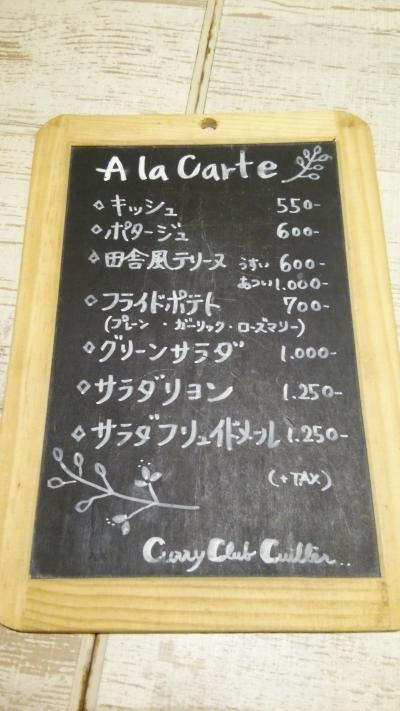 A la Carte
◇ キッシュ 550-
◇ ポタージュ 600-
◇ 田舎風テリーヌ うすい 600-
あつい 1.000-
◇ フライドポテト 700-
(プレーン ・ ガーリック ・ ローズマリー)
◇ グリーンサラダ 1.000-
◇ サラダリヨン 1.250-
◇ サラダフリュイドメール 1.250-
(+TAX)
Curry Club Cuiller..